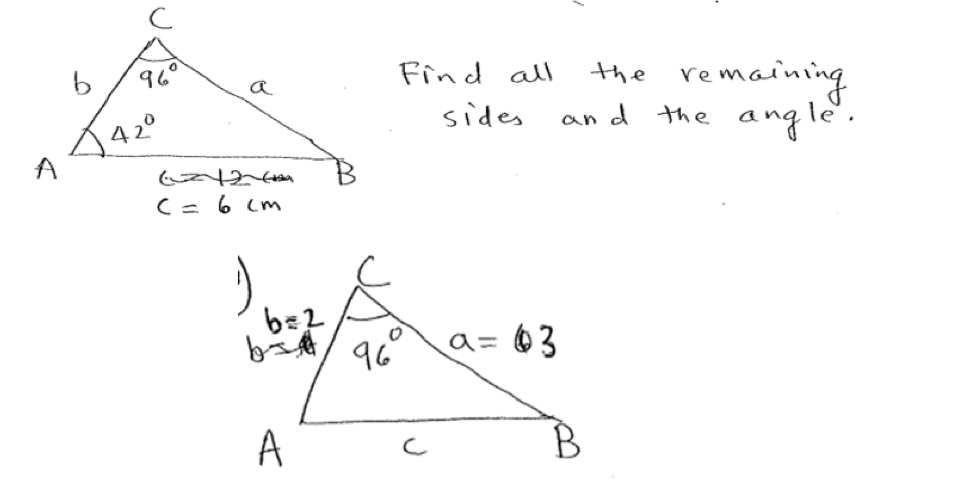 C
96°
b
a
42°
A
B
c = 6 cm
Find all the remaining
sides and the angle.
1)
C
b=2
96°
a= 3
A
c
B